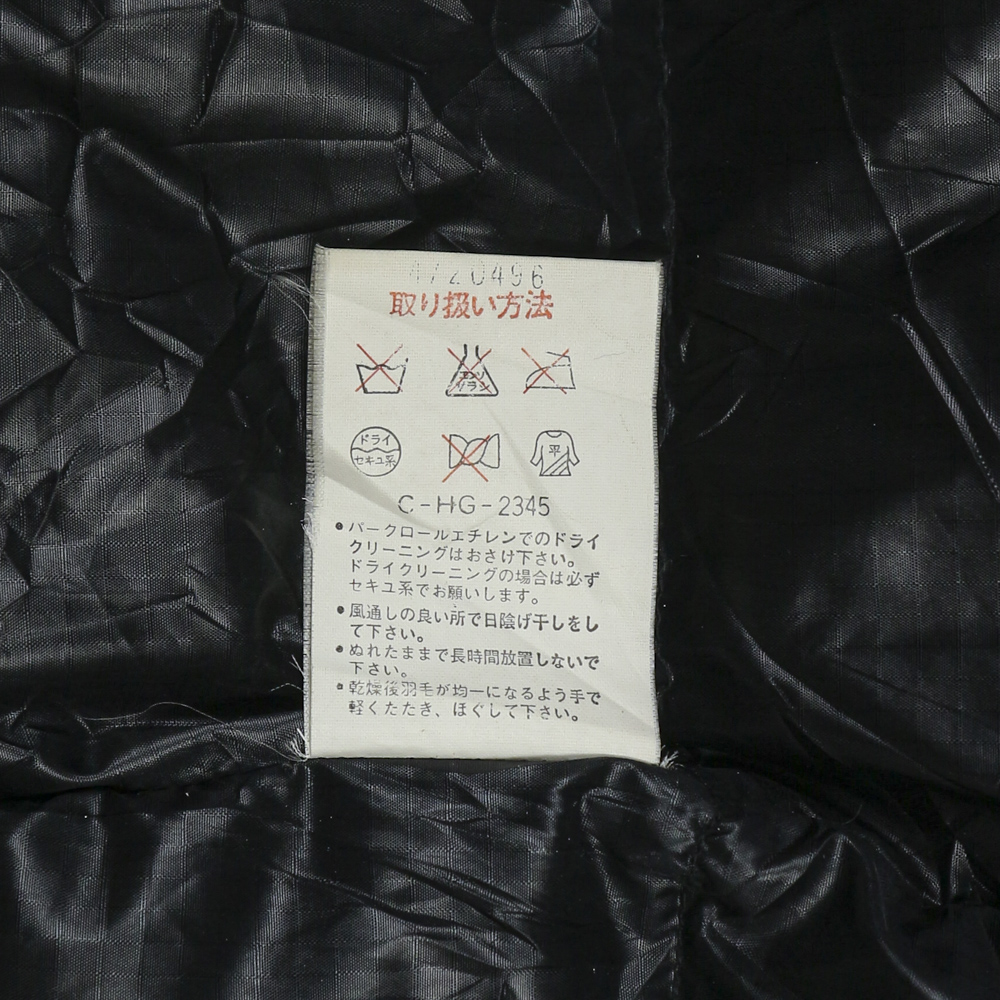 4720496
取り扱い方法
エンソ
サラシ
ドライ
セキユ系
平
C-HG-2345
•パークロールエチレンでのドライ
クリーニングはおさけ下さい。
ドライクリーニングの場合は必ず
セキユ系でお願いします。
•風通しの良い所で日陰げ干しをし
て下さい。
•ぬれたままで長時間放置しないで
下さい。
•乾燥後羽毛が均一になるよう手で
軽くたたき、ほぐして下さい。